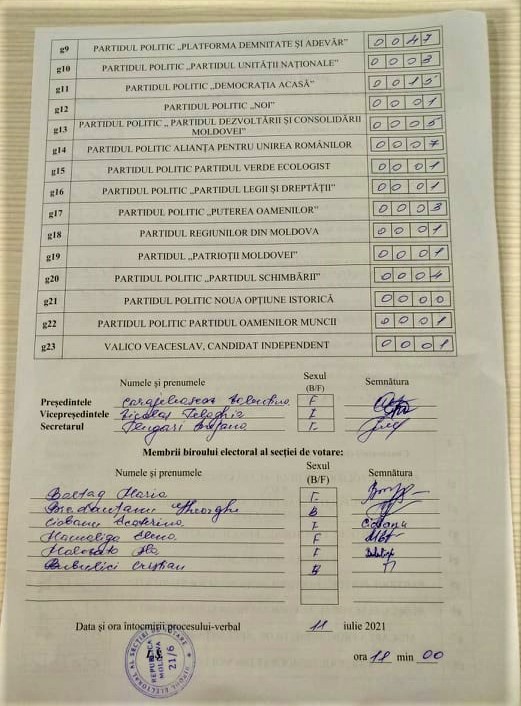 g9 PARTIDUL POLITIC „PLATFORMA DEMNITATE ȘI ADEVĂR” 0 0 4 7
g10 PARTIDUL POLITIC „PARTIDUL UNITĂȚII NAȚIONALE” 0 0 0 3
g11 PARTIDUL POLITIC „DEMOCRAȚIA ACASĂ” 0 0 1 5
g12 PARTIDUL POLITIC „NOI” 0 0 0 1
g13 PARTIDUL POLITIC „ PARTIDUL DEZVOLTĂRII ȘI CONSOLIDĂRII
MOLDOVEI” 0 0 0 5
g14 PARTIDUL POLITIC ALIANȚA PENTRU UNIREA ROMÂNILOR 0 0 0 7
g15 PARTIDUL POLITIC PARTIDUL VERDE ECOLOGIST 0 0 0 1
g16 PARTIDUL POLITIC „PARTIDUL LEGII ȘI DREPTĂȚII” 0 0 0 1
g17 PARTIDUL POLITIC „PUTEREA OAMENILOR” 0 0 0 3
g18 PARTIDUL REGIUNILOR DIN MOLDOVA 0 0 0 1
g19 PARTIDUL „PATRIOȚII MOLDOVEI” 0 0 0 1
g20 PARTIDUL POLITIC „PARTIDUL SCHIMBĂRII” 0 0 0 4
g21 PARTIDUL POLITIC NOUA OPȚIUNE ISTORICĂ 0 0 0 0
g22 PARTIDUL POLITIC PARTIDUL OAMENILOR MUNCII 0 0 0 1
g23 VALICO VEACESLAV, CANDIDAT INDEPENDENT 0 0 0 1
Numele și prenumele Sexul (B/F) Semnătura
Președintele F
Vicepreședintele
Secretarul
Membrii biroului electoral al secției de votare:
Numele și prenumele Sexul (B/F) Semnătura
Maria
Gheorghe B
Ciobanu Ecaterina Ciobanu
Elena F
Cristian B
Data și ora întocmirii procesului-verbal 11 iulie 2021
ora 18 min 00
BIROUL ELECTORAL AL SECȚIEI DE VOTARE
REPUBLICA
MOLDOVA
21/6